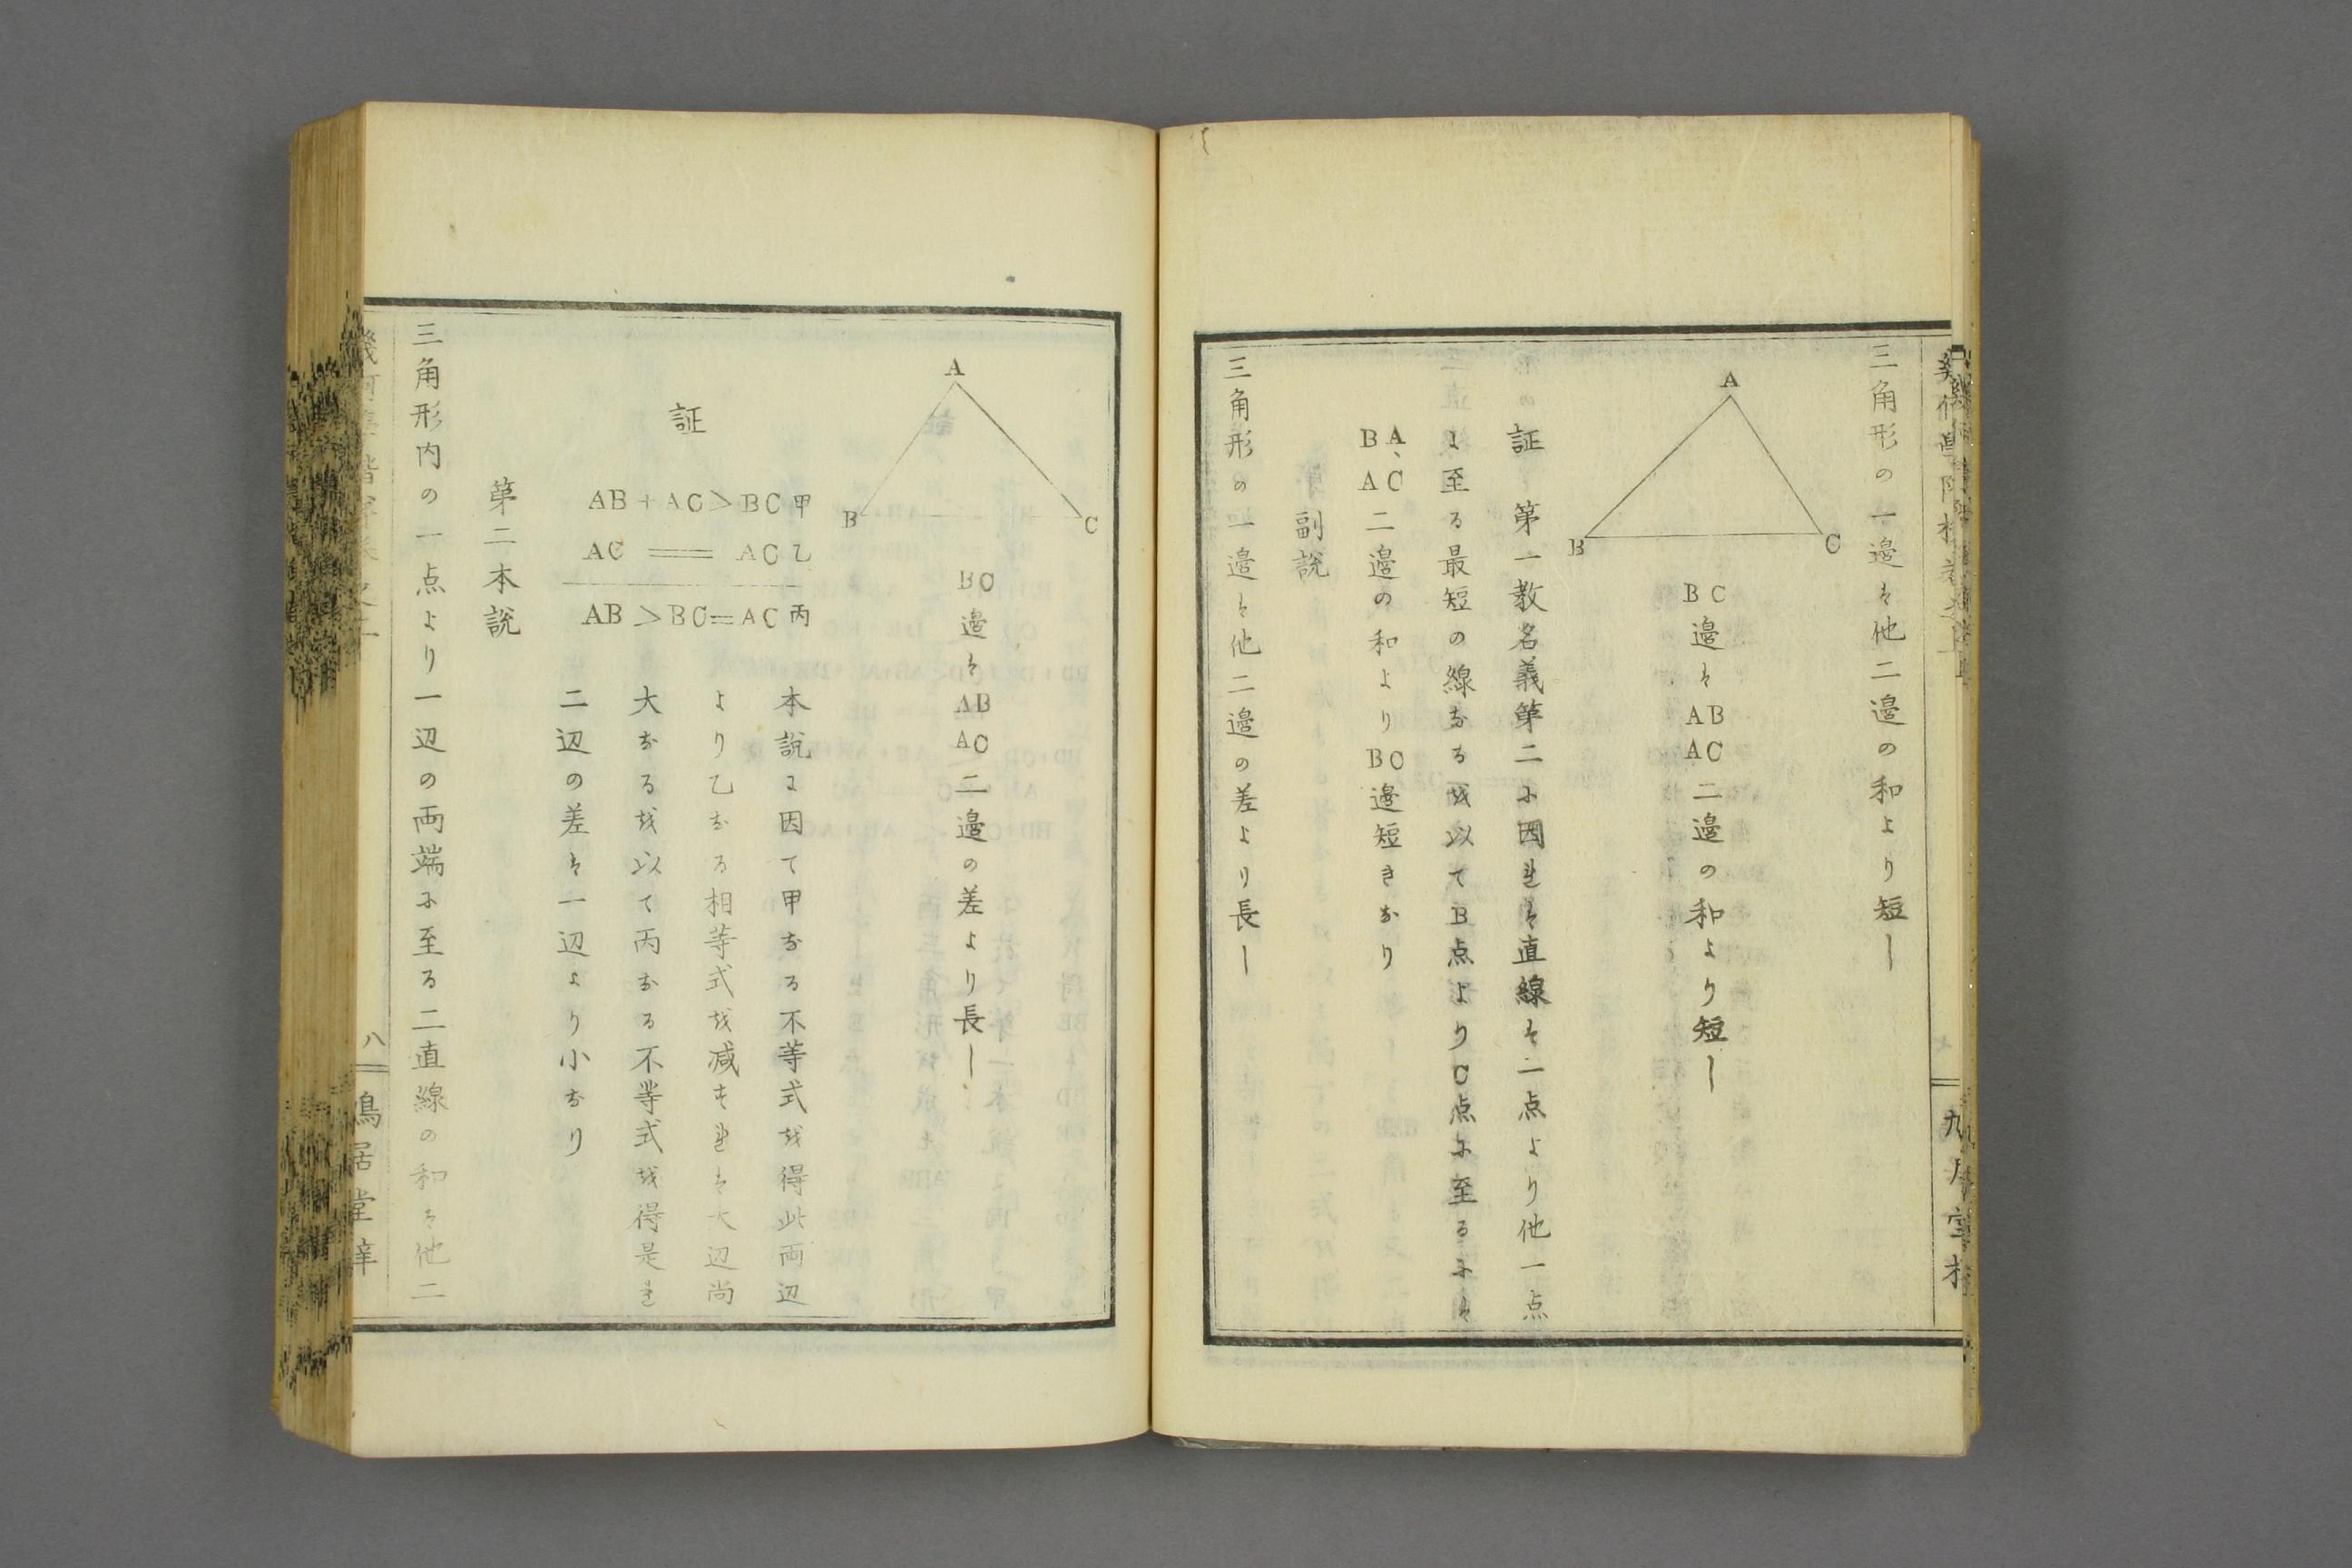 三角形の一邉ハ他二邉の和より短し
A
B
C
BC邉ハAB AC二邉の和より短し
証 第一教名義第二に因れハ直線ハ二点より他一点
に至る最短の線なるを以てB点よりC点に至るにハ
BA、AC二邉の和よりBC邉短きなり
副説
三角形の一邉ハ他二邉の差より長し
A
B
C
BC邉ハAB AC二邉の差より長し
証
AB+AC>BC甲
AC=AC乙
AB>BC=AC丙
本説に因て甲なる不等式を得此両辺
より乙なる相等式を減すれハ大辺尚
大なるを以て丙なる不等式を得是れ
二辺の差ハ一辺より小なり
第二本説
三角形内の一点より一辺の両端に至る二直線の和ハ他二
八